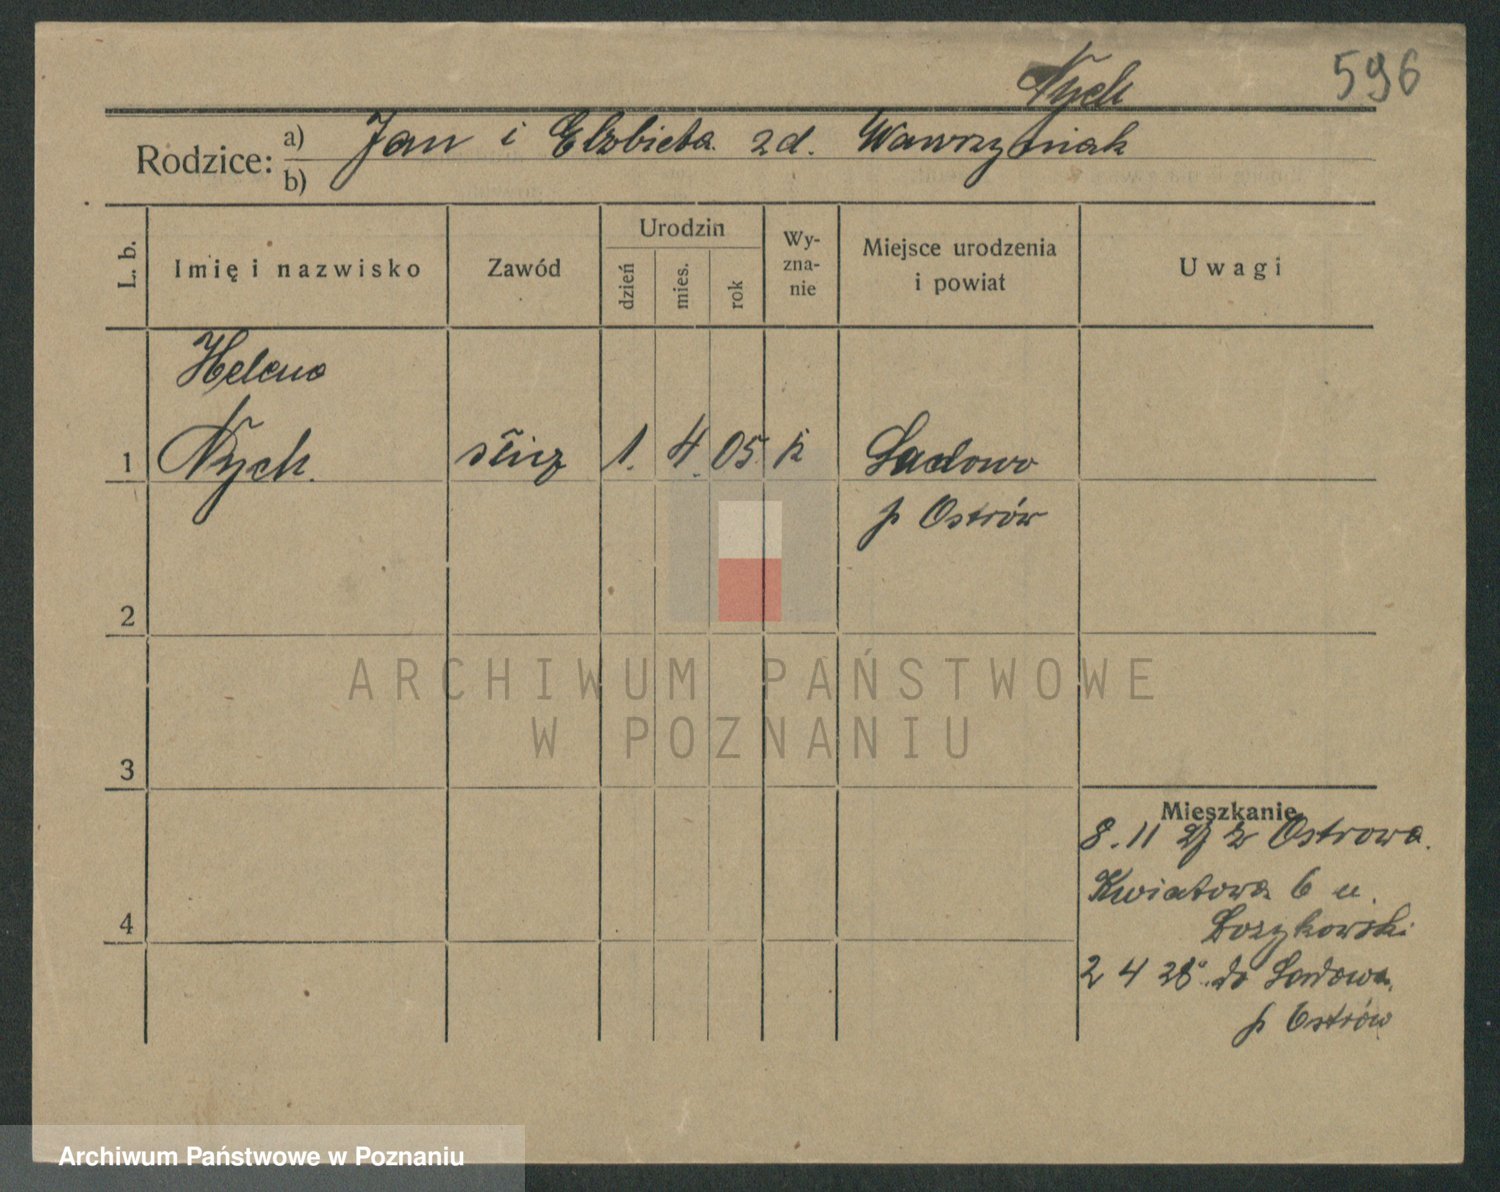 Nych
596
Rodzice: a) Jan i Elzbieta zd. Wawrzyniak
b)
L. b.
Imię i nazwisko
Zawód
Urodzin
dzień
mies.
rok
Wy-
zna-
nie
Miejsce urodzenia
i powiat
Uwagi
Helena
1 Nych. służ 1. 4. 05. k Sadowo
p Ostrów
2
3
4
Mieszkanie
8. 11 27 z Ostrowa.
Kwiatowa 6 u.
2 4 28. do Sadowa
p Ostrów
ARCHIWUM PAŃSTWOWE
W POZNANIU
Archiwum Państwowe w Poznaniu